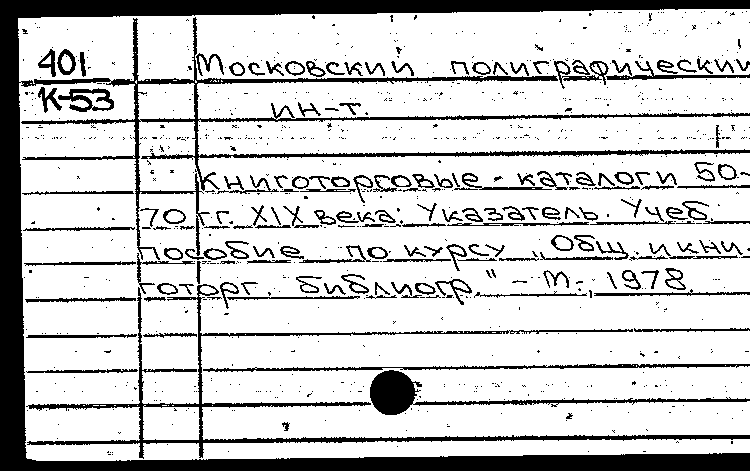 401 Московский полиграфический
К-53
ин-т.
Книготорговые каталоги 50-
70 гг. XIX века: Указатель. Учеб.
пособие по курсу „Общ. и кни-
готорг. библиогр." – М., 1978.